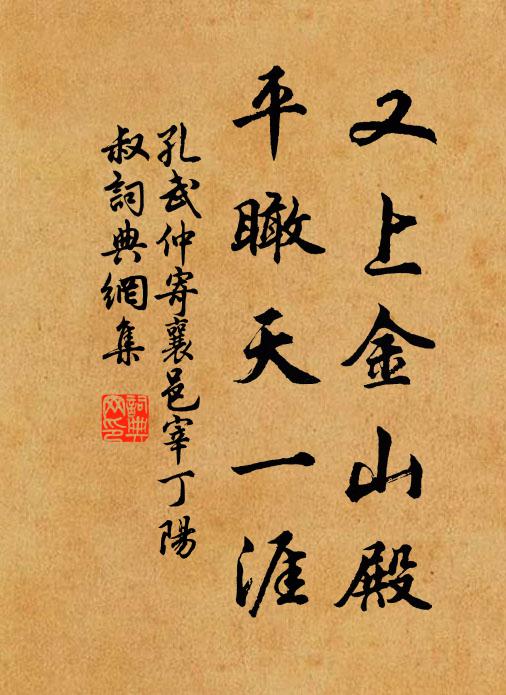 又上金山殿
平瞰天一涯
孔武仲寄襄邑宰丁陽
叔詞典網集
詞典網印